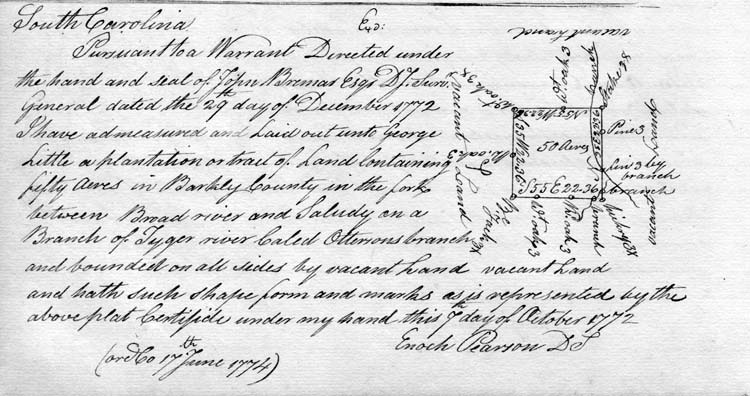 South Carolina
Exd:
Pursuant to a Warrant Directed under
the hand and seal of John Bremar Esqr D. Surv.
General dated the 29th day of December 1772
I have admeasured and Laid out unto George
Little a plantation or tract of Land Containing
fifty Acres in Barkly County in the fork
between Broad river and Saludy on a
Branch of Tyger river Caled Otterons branch
and bounded on all sides by vacant Land
and hath such shape form and marks as is represented by the
above plat Certifide under my hand this 7th day of October 1772
Enoch Pearson D S
(ord Co 17th June 1774)
vacant Land
Vacant Land
vacant Land
vacant Land
50 Acres
S 55 E 22-36
Pine 3
by
branch
branch